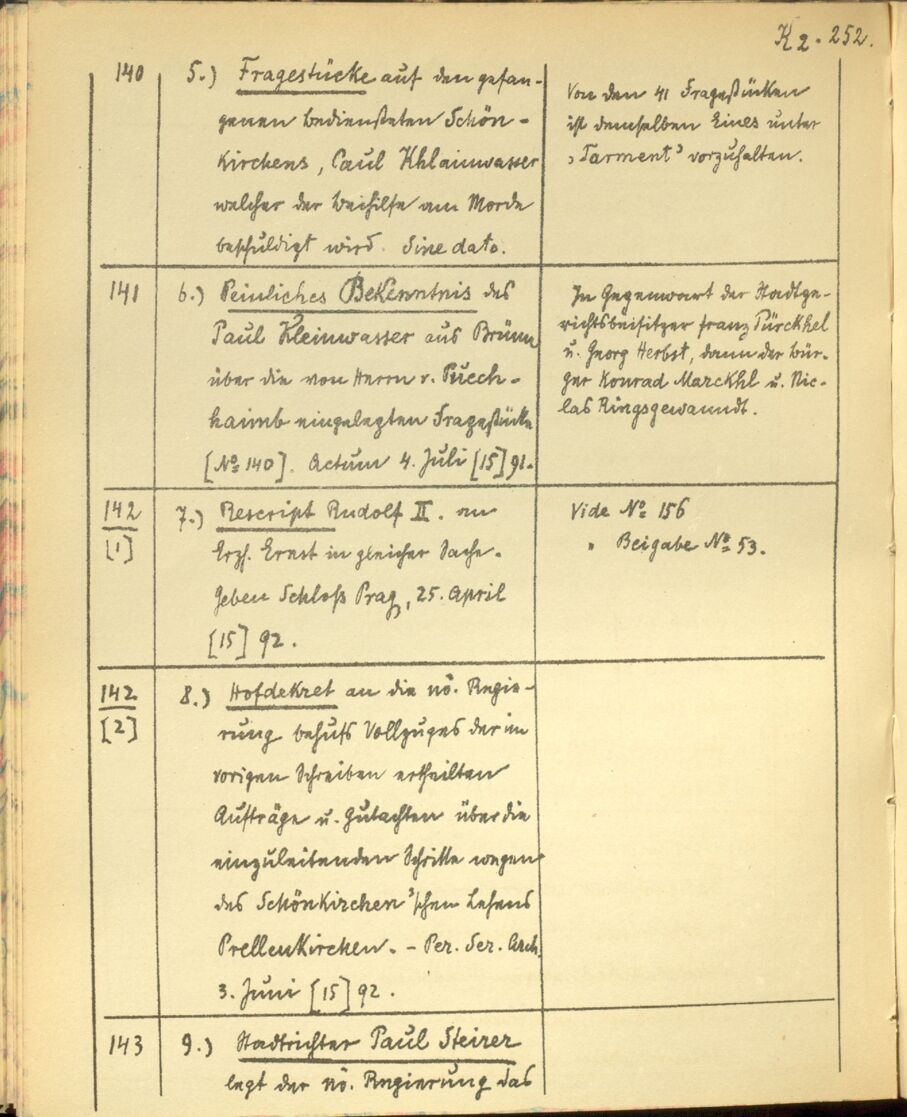 K 2 · 252.
140
5.) Fragestücke auf den gefan-
genen Bediensteten Schön-
kirchens, Paul Khlainwasser
welcher der Beihilfe am Morde
beschuldigt wird. Sine dato.
Von den 41 Fragestücken
ist demselben Eines unter
„Tarment” vorzuhalten.
141
6.) Peinliches Bekenntnis des
Paul Kleinwasser aus Brünn
über die von Herrn v. Puech-
haimb eingelegten Fragestücke
[No 140]. Actum 4. Juli [15]91.
In Gegenwart der Stadtge-
richtsbeisitzer Franz Pürckhel
u. Georg Herbst, dann der Bür-
ger Konrad Marckhl u. Nic-
las Ringsgewanndt.
142
[1]
7.) Rescript Rudolf II. an
Erzh. Ernst in gleicher Sache.
Geben Schloß Prag, 25. April
[15] 92.
Vide No 156
„ Beigabe No 53.
142
[2]
8.) Hofdekret an die nö. Regie-
rung behufs Vollzuges der im
vorigen Schreiben ertheilten
Aufträge u. Gutachten über die
einzuleitenden Schritte wegen
des Schönkirchen'schen Lehens
Prellenkirchen. – Per. Ser. Arch.
3. Juni [15] 92.
143
9.) Stadtrichter Paul Steirer
legt der nö. Regierung das